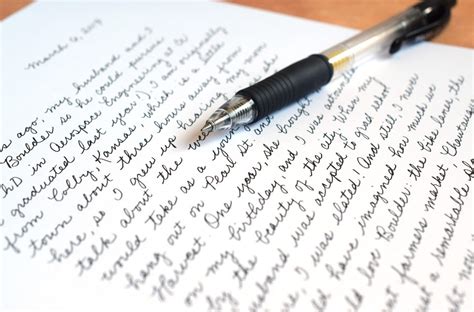 March 6,
s ago, my husband and I
Boulder so he could pursue
hD in Aerospace Engineering at
graduated last year!) I am originally
from Colby, Kansas, which is a little
town about three hours away from
here, so I grew up hearing my mom
talk about the
would take as a
hang out on Pearl St. and
Harvest. One year, she brought
on my birthday and I was
the beauty of the city. When my
usband was accepted to grad school
ere, I was elated! And still, I never
ld have imagined how much we
ld love Boulder: the bike lanes, the
at farmers market,
ust a remarkable